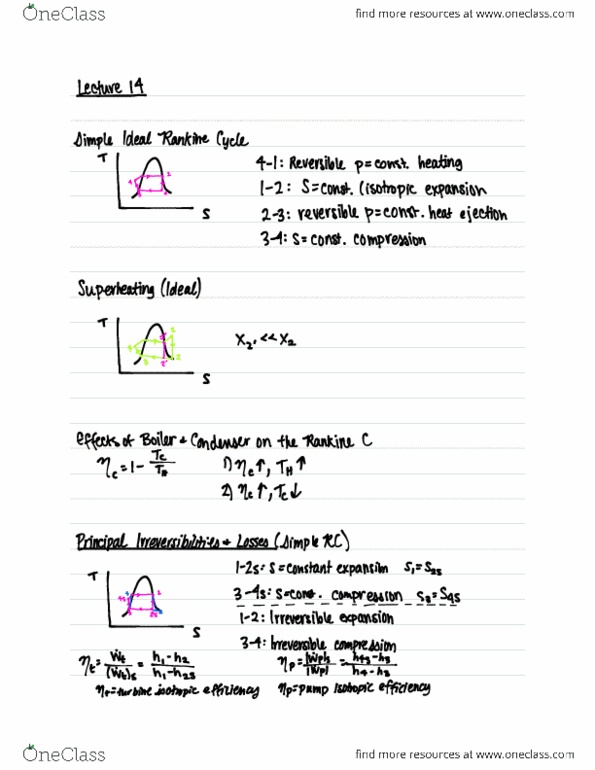 OneClass
find more resources at www.oneclass.com
Lecture 14
Simple Ideal Rankine Cycle
T
S
4-1: Reversible p=const. heating
1-2: S=const. (isotropic expansion
2-3: reversible p=const. heat ejection
3-4: S=const. compression
Superheating (Ideal)
T
S
X2' << X2
Effects of Boiler + Condenser on the Rankine C
ηc = 1 - Tc/TH
1) ηc↑, TH↑
2) ηc↑, Tc↓
Principal Irreversibilities + Losses (Simple RC)
T
S
1-2s: S=constant expansion S1=S2s
3-4s: S=const. compression S3=S4s
1-2: Irreversible expansion
3-4: Irreversible compression
ηt = Ẇt/(Ẇt)s = h1-h2/h1-h2s
ηp = |Ẇp|s/|Ẇp| = h4s-h3/h4-h3
ηt=turbine isotropic efficiency
ηp=pump isotopic efficiency
OneClass
find more resources at www.oneclass.com